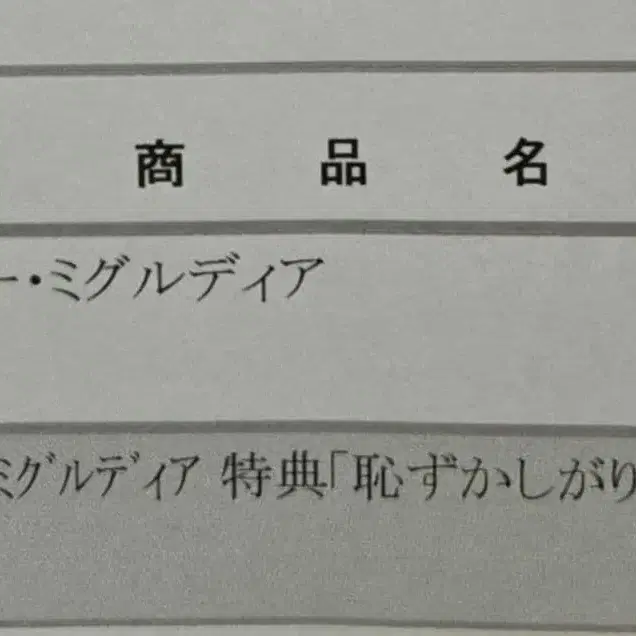 商 品 名
ー・ミグルディア
ミグルディア 特典「恥ずかしがり